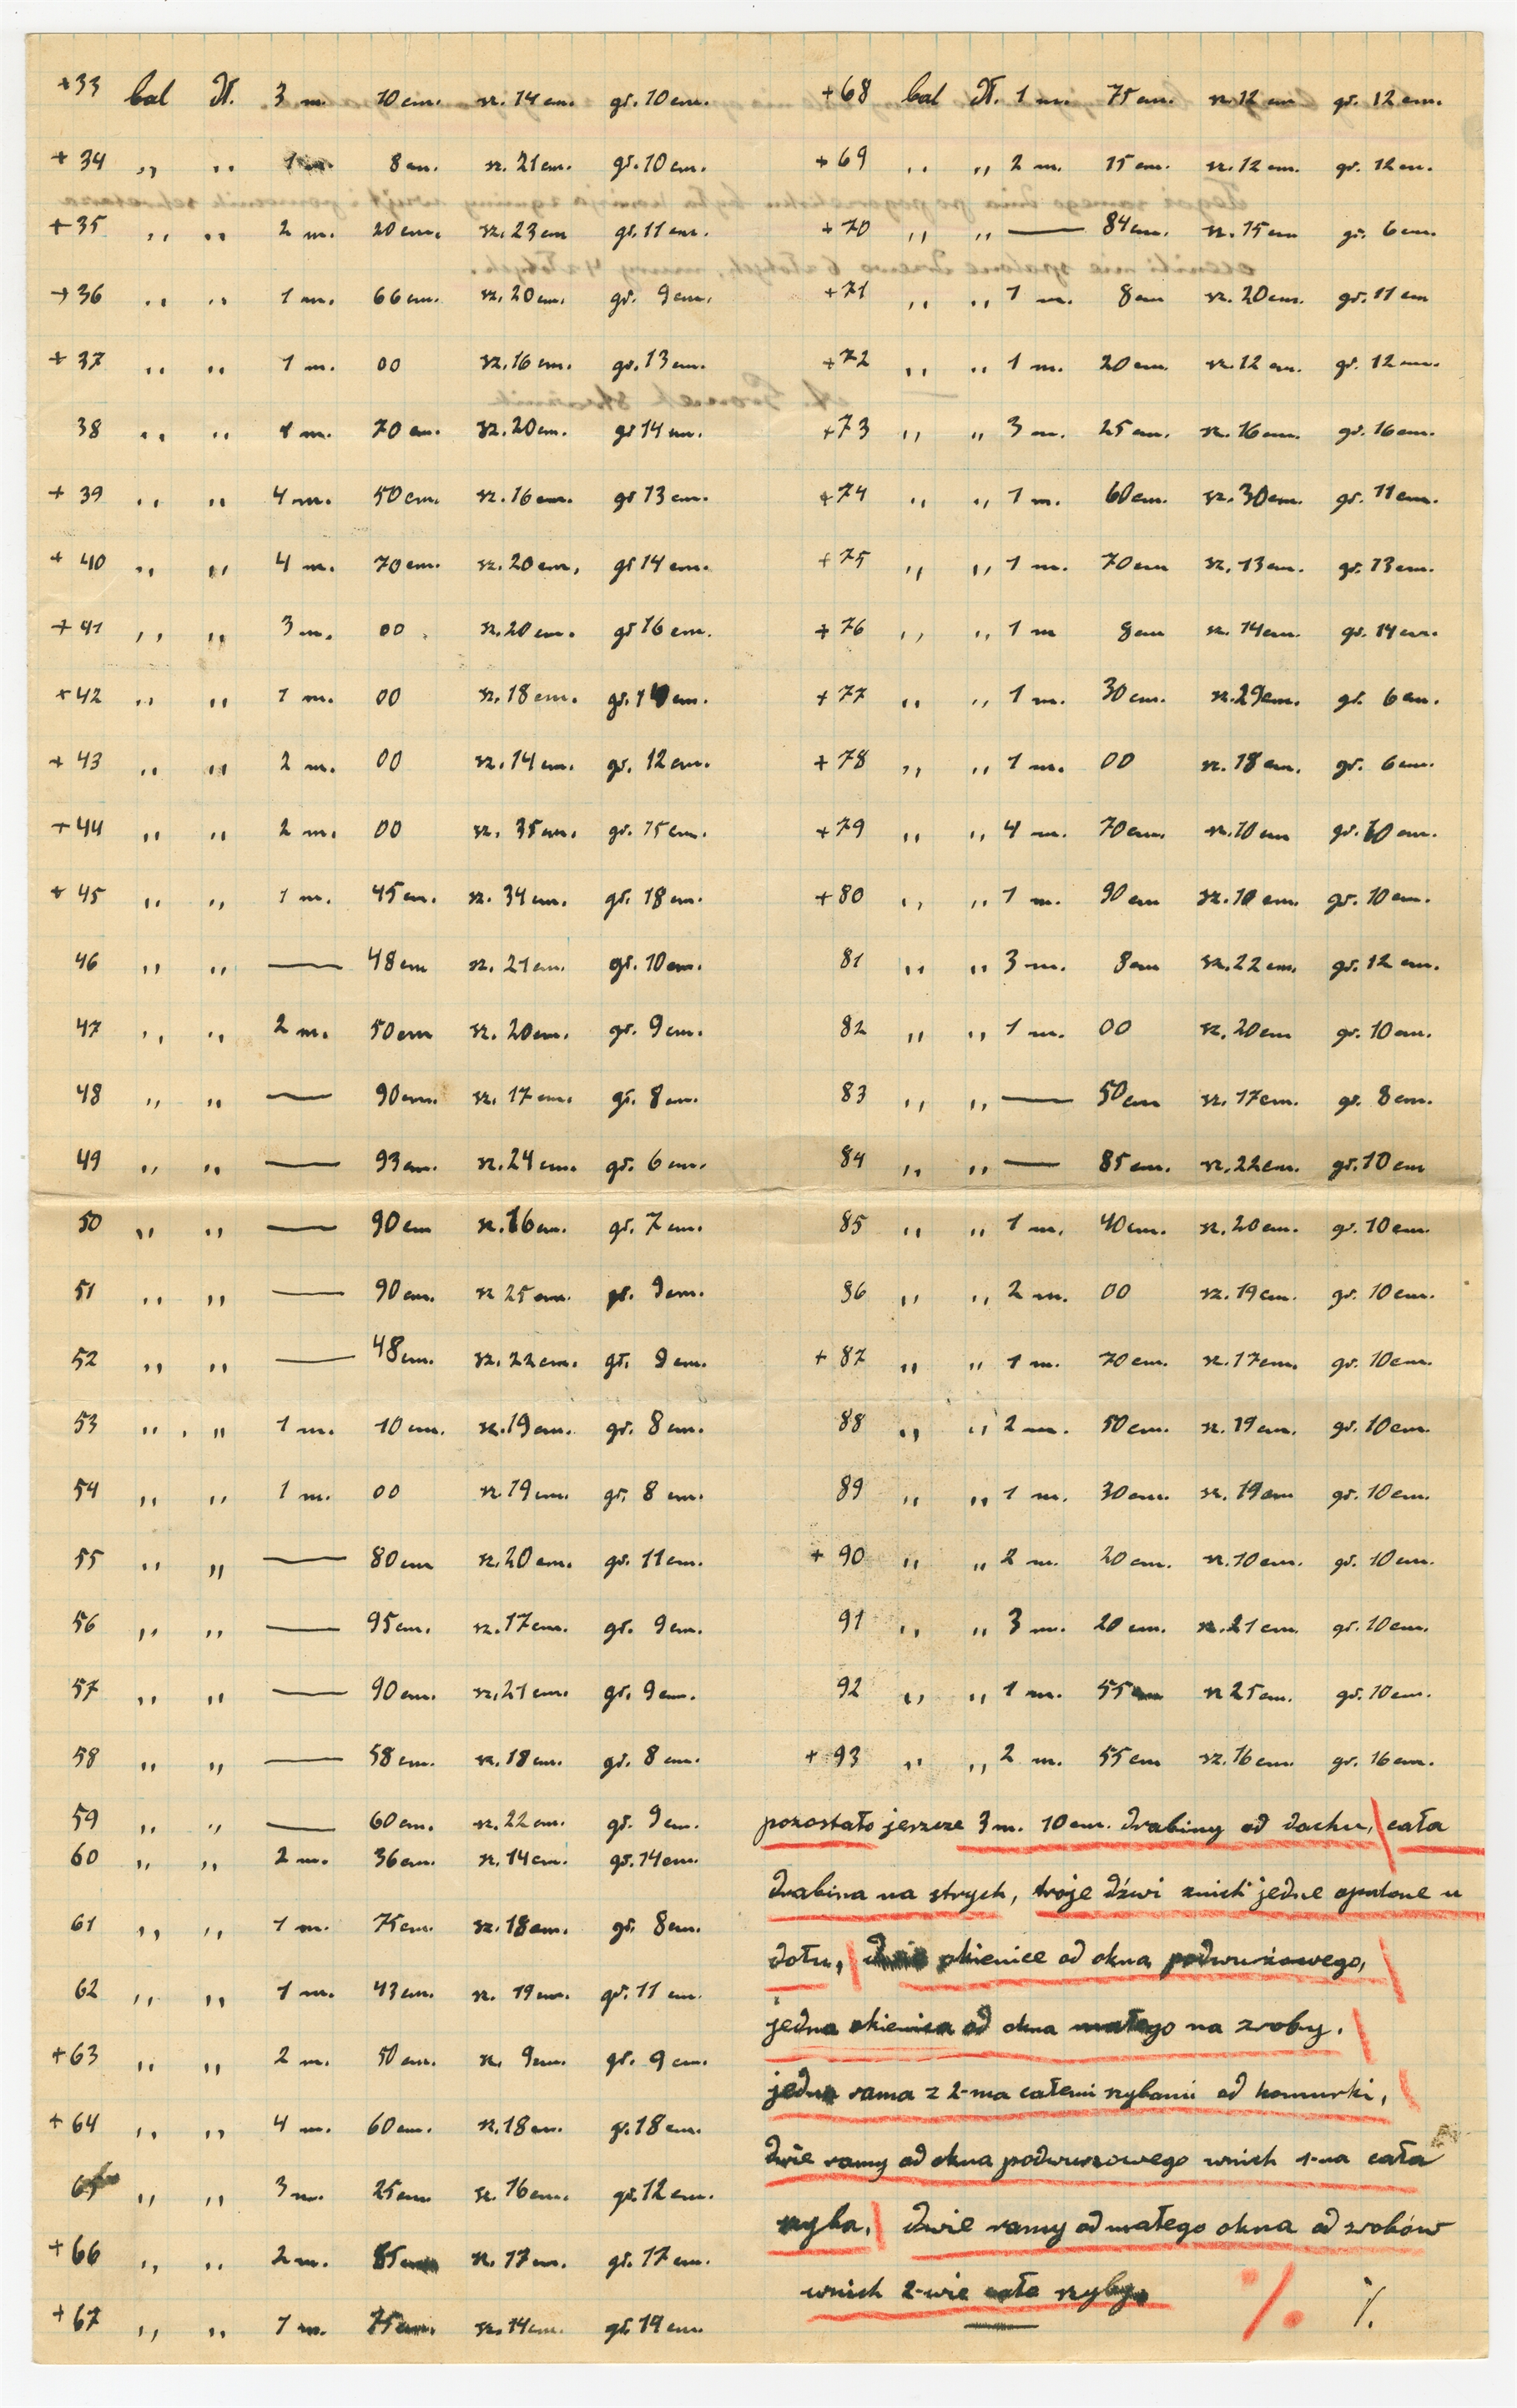 +33 bal dł. 3 m. 10 cm. sz. 14 cm. gł. 10 cm.
+ 34 ,, ,, 1 m 8 cm. sz. 21 cm. gł. 10 cm.
+ 35 ,, ,, 2 m. 20 cm. sz. 23 cm gł. 11 cm.
+ 36 ,, ,, 1 m. 66 cm. sz. 20 cm. gł. 9 cm.
+ 37 ,, ,, 1 m. 00 sz. 16 cm. gł. 13 cm.
38 ,, ,, 1 m. 70 cm. sz. 20 cm. gł 14 cm.
+ 39 ,, ,, 4 m. 50 cm. sz. 16 cm. gł 13 cm.
+ 40 ,, ,, 4 m. 70 cm. sz. 20 cm. gł 14 cm.
+ 41 ,, ,, 3 m. 00 sz. 20 cm. gł 16 cm.
+ 42 ,, ,, 1 m. 00 sz. 18 cm. gł. cm.
+ 43 ,, ,, 2 m. 00 sz. 14 cm. gł. 12 cm.
+ 44 ,, ,, 2 m. 00 sz. 35 cm. gł. 15 cm.
+ 45 ,, ,, 1 m. 45 cm. sz. 34 cm. gł. 18 cm.
46 ,, ,, — 48 cm sz. 21 cm. gł. 10 cm.
47 ,, ,, 2 m. 50 cm sz. 20 cm. gł. 9 cm.
48 ,, ,, — 90 cm. sz. 17 cm. gł. 8 cm.
49 ,, ,, — 93 cm. sz. 24 cm. gł. 6 cm.
50 ,, ,, — 90 cm sz. 16 cm. gł. 7 cm.
51 ,, ,, — 90 cm. sz 25 cm. gł. 9 cm.
52 ,, ,, — 48 cm. sz. 22 cm. gł. 9 cm.
53 ,, ,, 1 m. 10 cm. sz. 19 cm. gł. 8 cm.
54 ,, ,, 1 m. 00 sz 19 cm. gł. 8 cm.
55 ,, ,, — 80 cm sz. 20 cm. gł. 11 cm.
56 ,, ,, — 95 cm. sz. 17 cm. gł. 9 cm.
57 ,, ,, — 90 cm. sz. 21 cm. gł. 9 cm.
58 ,, ,, — 58 cm. sz. 18 cm. gł. 8 cm.
59 ,, ,, — 60 cm. sz. 22 cm. gł. 9 cm.
60 ,, ,, 2 m. 36 cm. sz. 14 cm. gł. 14 cm.
61 ,, ,, 1 m. 75 cm. sz. 18 cm. gł. 8 cm.
62 ,, ,, 1 m. 43 cm. sz. 19 cm. gł. 11 cm.
+ 63 ,, ,, 2 m. 50 cm. sz. 9 cm. gł. 9 cm.
+ 64 ,, ,, 4 m. 60 cm. sz. 18 cm. gł. 18 cm.
65 ,, ,, 3 m. 25 cm sz. 16 cm. gł. 12 cm.
+ 66 ,, ,, 2 m. 85 cm sz. 17 cm. gł. 17 cm.
+ 67 ,, ,, 1 m. 75 cm. sz. 14 cm. gł. 14 cm.
+ 68 bal dł. 1 m. 75 cm. sz. 12 cm gł. 12 cm.
+ 69 ,, ,, 2 m. 15 cm. sz. 12 cm. gł. 12 cm.
+ 70 ,, ,, — 84 cm. sz. 15 cm gł. 6 cm.
+ 71 ,, ,, 1 m. 8 cm sz. 20 cm. gł. 11 cm
+ 72 ,, ,, 1 m. 20 cm. sz. 12 cm. gł. 12 cm.
+ 73 ,, ,, 3 m. 25 cm. sz. 16 cm. gł. 16 cm.
+ 74 ,, ,, 1 m. 60 cm. sz. 30 cm. gł. 11 cm.
+ 75 ,, ,, 1 m. 70 cm sz. 13 cm. gł. 13 cm.
+ 76 ,, ,, 1 m 8 cm sz. 14 cm. gł. 14 cm.
+ 77 ,, ,, 1 m. 30 cm. sz. 29 cm. gł. 6 cm.
+ 78 ,, ,, 1 m. 00 sz. 18 cm. gł. 6 cm.
+ 79 ,, ,, 4 m. 70 cm. sz. 10 cm gł. 10 cm.
+ 80 ,, ,, 1 m. 90 cm sz. 10 cm. gł. 10 cm.
81 ,, ,, 3 m. 8 cm sz. 22 cm. gł. 12 cm.
82 ,, ,, 1 m. 00 sz. 20 cm gł. 10 cm.
83 ,, ,, — 50 cm sz. 17 cm. gł. 8 cm.
84 ,, ,, — 85 cm. sz. 22 cm. gł. 10 cm
85 ,, ,, 1 m. 40 cm. sz. 20 cm. gł. 10 cm.
86 ,, ,, 2 m. 00 sz. 19 cm. gł. 10 cm.
+ 87 ,, ,, 1 m. 70 cm. sz. 17 cm. gł. 10 cm.
88 ,, ,, 2 m. 50 cm. sz. 19 cm. gł. 10 cm.
89 ,, ,, 1 m. 30 cm. sz. 19 cm gł. 10 cm.
+ 90 ,, ,, 2 m. 20 cm. sz. 10 cm. gł. 10 cm.
91 ,, ,, 3 m. 20 cm. sz. 21 cm. gł. 10 cm.
92 ,, ,, 1 m. 55 cm sz 25 cm. gł. 10 cm.
+ 93 ,, ,, 2 m. 55 cm sz. 16 cm. gł. 16 cm.
pozostało jeszcze 3 m. 10 cm. drabiny od dachu, cała
drabina na strych, troje dźwi znich jedne opalone u
dołu, dwie okienice od okna podwurzowego,
jedna okienica od okna małego na zroby.
jedna rama z 2-ma całemi szybami od komurki,
dwie ramy od okna podwurzowego wnich 1-na cała
szyba, dwie ramy od małego okna od zrobów
wnich 2-wie całe szyby.
% %